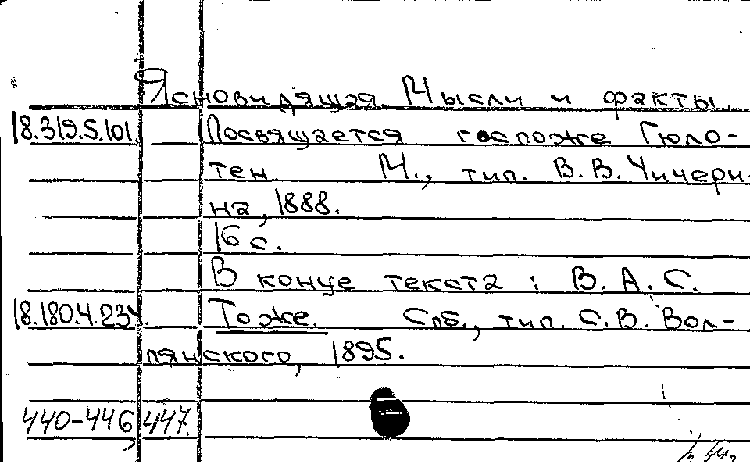 Ясновидящая. Мысли и факты
18.319.5.101 Посвящается госпоже Гюло-
тен М., тип. В. В. Чичери-
на, 1888.
16 с.
В конце текста: В. А. С.
18.180.4.234. Тоже. Спб., тип. С. В. Вол-
пянского, 1895.
440-446, 447.